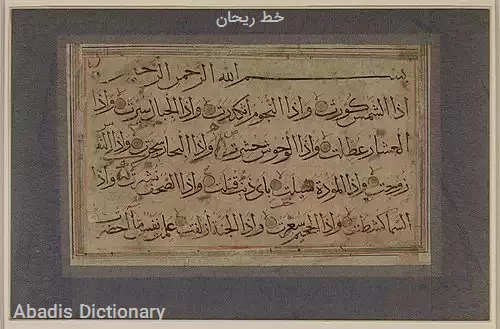 خط ریحان
بسم الله الرحمن الرحيم
اذا الشمس كورت واذا النجوم انكدرت واذا الجبال سيرت واذا
العشار عطلت واذا الوحوش حشرت واذا البحار سجرت واذا النفوس
زوجت واذا الموؤدة سئلت بأى ذنب قتلت واذا الصحف نشرت واذا
السماء كشطت واذا الجحيم سعرت واذا الجنة ازلفت علمت نفس ما احضرت
Abadis Dictionary